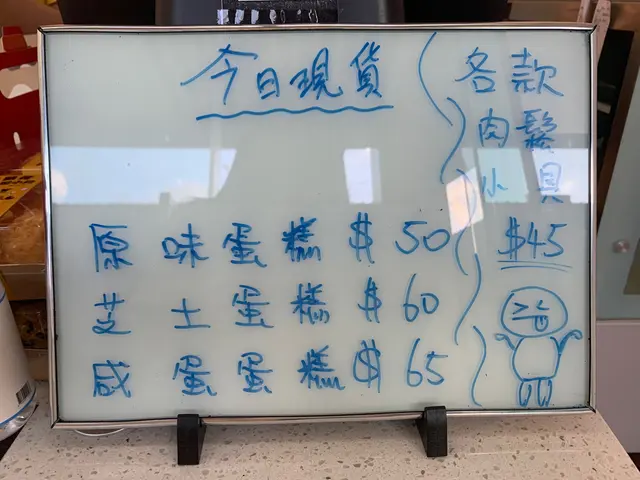 今日現貨
原味蛋糕 $50
芝士蛋糕 $60
咸蛋蛋糕 $65
各款
肉鬆
小貝
$45